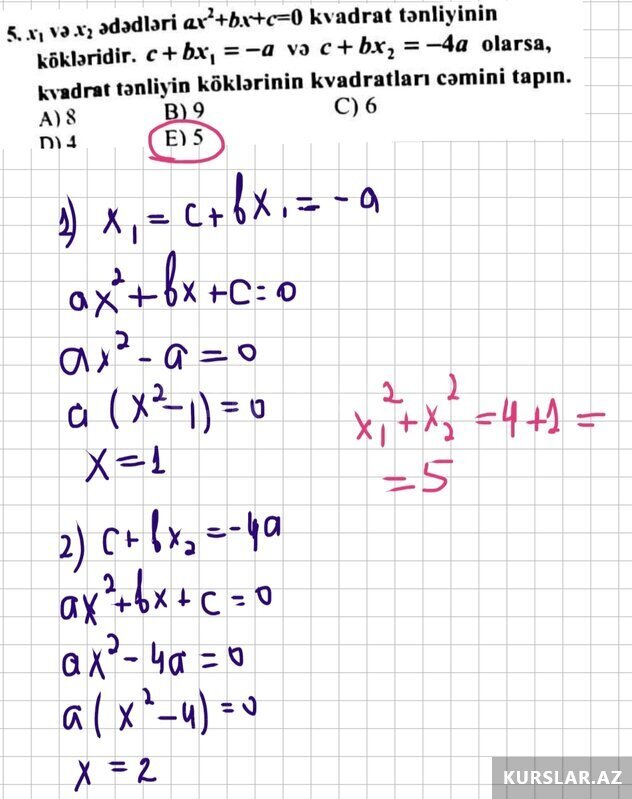 5. x₁ və x₂ ədədləri ax²+bx+c=0 kvadrat tənliyinin
kökləridir. c + bx₁ = −a və c + bx₂ = −4a olarsa,
kvadrat tənliyin köklərinin kvadratları cəmini tapın.
A) 8 B) 9 C) 6
D) 4 E) 5
1) x₁ = c + bx₁ = −a
ax² + bx + c = 0
ax² − a = 0
a (x² − 1) = 0
x = 1
x₁² + x₂² = 4 + 1 =
= 5
2) c + bx₂ = −4a
ax² + bx + c = 0
ax² − 4a = 0
a (x² − 4) = 0
x = 2
KURSLAR.AZ